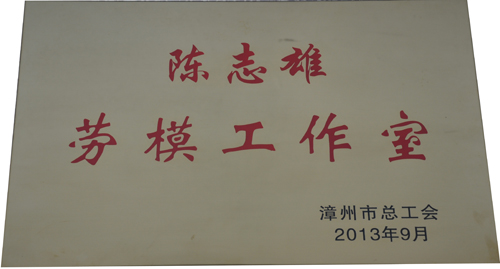 陈志雄
劳模工作室
漳州市总工会
2013年9月